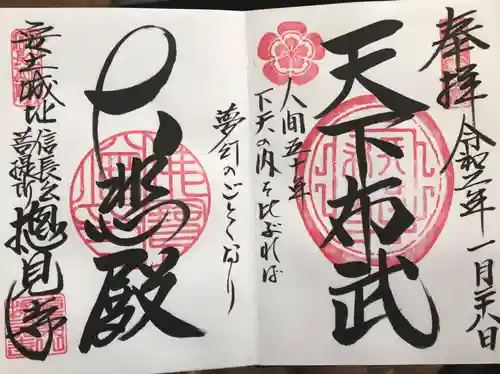 奉拝 令和二年一月
天下布武
人間五十年
下天の内を比ぶれば
夢幻のごとくなり
大悲殿
安土城址
信長公
菩提所
摠見寺